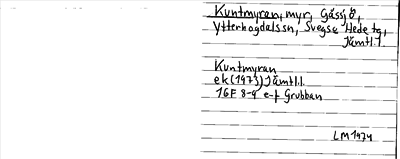 Kuntmyren, myr, Gåssjö,
Ytterhogdalssn, Svegs o Hede tg,
Jämtl.l.
Kuntmyran
ek (1973) Jämtl.l.
16F 8-9 e-f Grubban
LM 1974